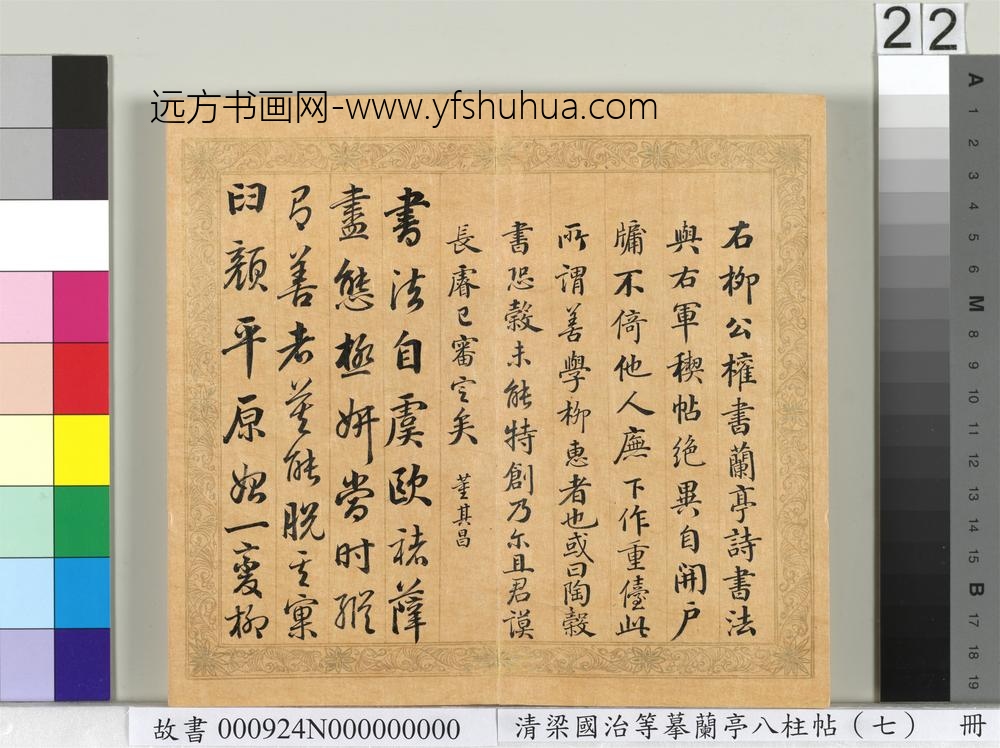 远方书画网-www.yfshuhua.com
22
右柳公權書蘭亭詩書法
與右軍稧帖絶異自開户
牖不倚他人廡下作重儓此
所謂善學柳惠者也或曰陶穀
書恐穀未能特創乃尔且君謨
長睿已審定矣 董其昌
書法自虞歐褚薛
盡態極妍當时縱
有善者莫能脱其窠
臼顔平原始一變柳
A 1 2 3 4 5 6 M 8 9 10 11 12 13 14 15 B 17 18 19
故書 000924N000000000
清梁國治等摹蘭亭八柱帖（七） 冊